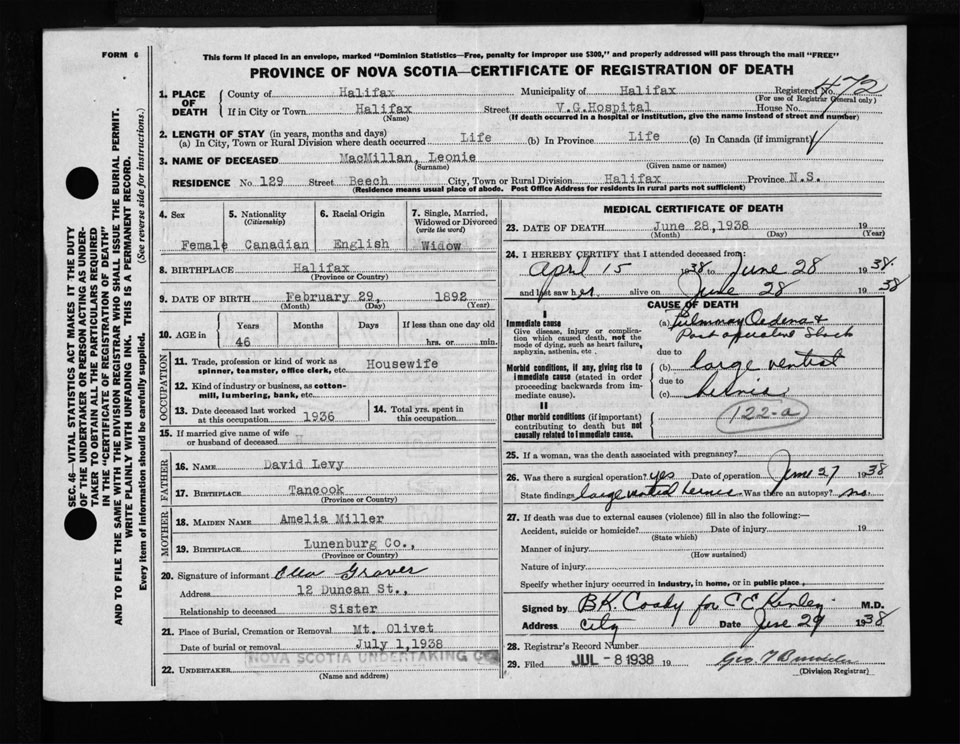 FORM 6
This form if placed in an envelope, marked "Dominion Statistics—Free, penalty for improper use $300," and properly addressed will pass through the mail "FREE"
PROVINCE OF NOVA SCOTIA—CERTIFICATE OF REGISTRATION OF DEATH
SEC. 46—VITAL STATISTICS ACT MAKES IT THE DUTY
OF THE UNDERTAKER OR PERSON ACTING AS UNDER-
TAKER TO OBTAIN ALL THE PARTICULARS REQUIRED
IN THE "CERTIFICATE OF REGISTRATION OF DEATH"
AND TO FILE THE SAME WITH THE DIVISION REGISTRAR WHO SHALL ISSUE THE BURIAL PERMIT.
WRITE PLAINLY WITH UNFADING INK. THIS IS A PERMANENT RECORD.
Every item of information should be carefully supplied. (See reverse side for instructions.)
1. PLACE OF DEATH
County of Halifax Municipality of Halifax Registered No. 472
(For use of Registrar General only)
If in City or Town Halifax Street V.G.Hospital House No.
(Name) (If death occurred in a hospital or institution, give the name instead of street and number)
2. LENGTH OF STAY (in years, months and days)
(a) In City, Town or Rural Division where death occurred Life (b) In Province Life (c) In Canada (if immigrant)
3. NAME OF DECEASED MacMillan, Leonie
(Surname) (Given name or names)
RESIDENCE No 129 Street Beech City, Town or Rural Division Halifax Province N.S.
(Residence means usual place of abode. Post Office Address for residents in rural parts not sufficient)
4. Sex
Female
5. Nationality
(Citizenship)
Canadian
6. Racial Origin
English
7. Single, Married,
Widowed or Divorced
(write the word)
Widow
8. BIRTHPLACE Halifax
(Province or Country)
9. DATE OF BIRTH February 29, 1892
(Month) (Day) (Year)
10. AGE in
Years Months Days If less than one day old
46 hrs. or min.
OCCUPATION
11. Trade, profession or kind of work as
spinner, teamster, office clerk, etc. Housewife
12. Kind of industry or business, as cotton-
mill, lumbering, bank, etc.
13. Date deceased last worked
at this occupation 1936
14. Total yrs. spent in
this occupation
15. If married give name of wife
or husband of deceased H
FATHER
16. NAME David Levy
17. BIRTHPLACE Tancook
(Province or Country)
MOTHER
18. MAIDEN NAME Amelia Miller
19. BIRTHPLACE Lunenburg Co.,
(Province or Country)
20. Signature of informant Graver
Address 12 Duncan St.,
Relationship to deceased Sister
21. Place of Burial, Cremation or Removal Mt. Olivet
Date of burial or removal July 1,1938
22. UNDERTAKER NOVA SCOTIA UNDERTAKING CO
(Name and address)
MEDICAL CERTIFICATE OF DEATH
23. DATE OF DEATH June 28,1938 19
(Month) (Day) (Year)
24. I HEREBY CERTIFY that I attended deceased from:
April 15 1938 to June 28 1938.
and last saw her alive on June 28 1938
CAUSE OF DEATH
I
Immediate cause
Give disease, injury or complica-
tion which caused death, not the
mode of dying, such as heart failure,
asphyxia, asthenia, etc.
(a) Pulmonary Oedema &
Post operative Shock
due to
Morbid conditions, if any, giving rise to
immediate cause (stated in order
proceeding backwards from im-
mediate cause).
(b) large ventral
due to
(c) hernia
II
Other morbid conditions (if important)
contributing to death but not
causally related to immediate cause.
122-a
25. If a woman, was the death associated with pregnancy?
26. Was there a surgical operation? yes Date of operation June 27 1938
State findings large ventral hernia Was there an autopsy? no
27. If death was due to external causes (violence) fill in also the following:—
Accident, suicide or homicide? Date of injury 19
(State which)
Manner of injury
(How sustained)
Nature of injury
Specify whether injury occurred in industry, in home, or in public place
Signed by B.K. Coady for C E Kenley M.D.
Address City Date June 29 1938
28. Registrar's Record Number
29. Filed JUL - 8 1938 19 Geo
(Division Registrar)